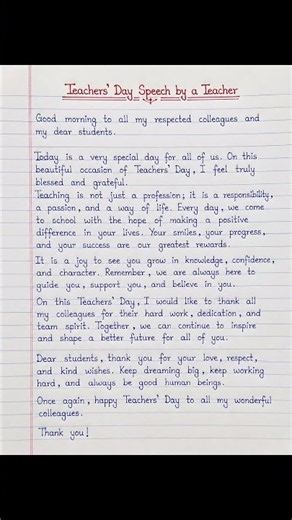 Teachers' Day Speech by a Teacher
Good morning to all my respected colleagues and
my dear students.
Today is a very special day for all of us. On this
beautiful occasion of Teachers' Day, I feel truly
blessed and grateful.
Teaching is not just a profession; it is a responsibility,
a passion, and a way of life. Every day, we come
to school with the hope of making a positive
difference in your lives. Your smiles, your progress,
and your success are our greatest rewards.
It is a joy to see you grow in knowledge, confidence,
and character. Remember, we are always here to
guide you, support you, and believe in you.
On this Teachers' Day, I would like to thank all
my colleagues for their hard work, dedication, and
team spirit. Together, we can continue to inspire
and shape a better future for all of you.
Dear students, thank you for your love, respect,
and kind wishes. Keep dreaming big, keep working
hard, and always be good human beings.
Once again, happy Teachers' Day to all my wonderful
colleagues.
Thank you!